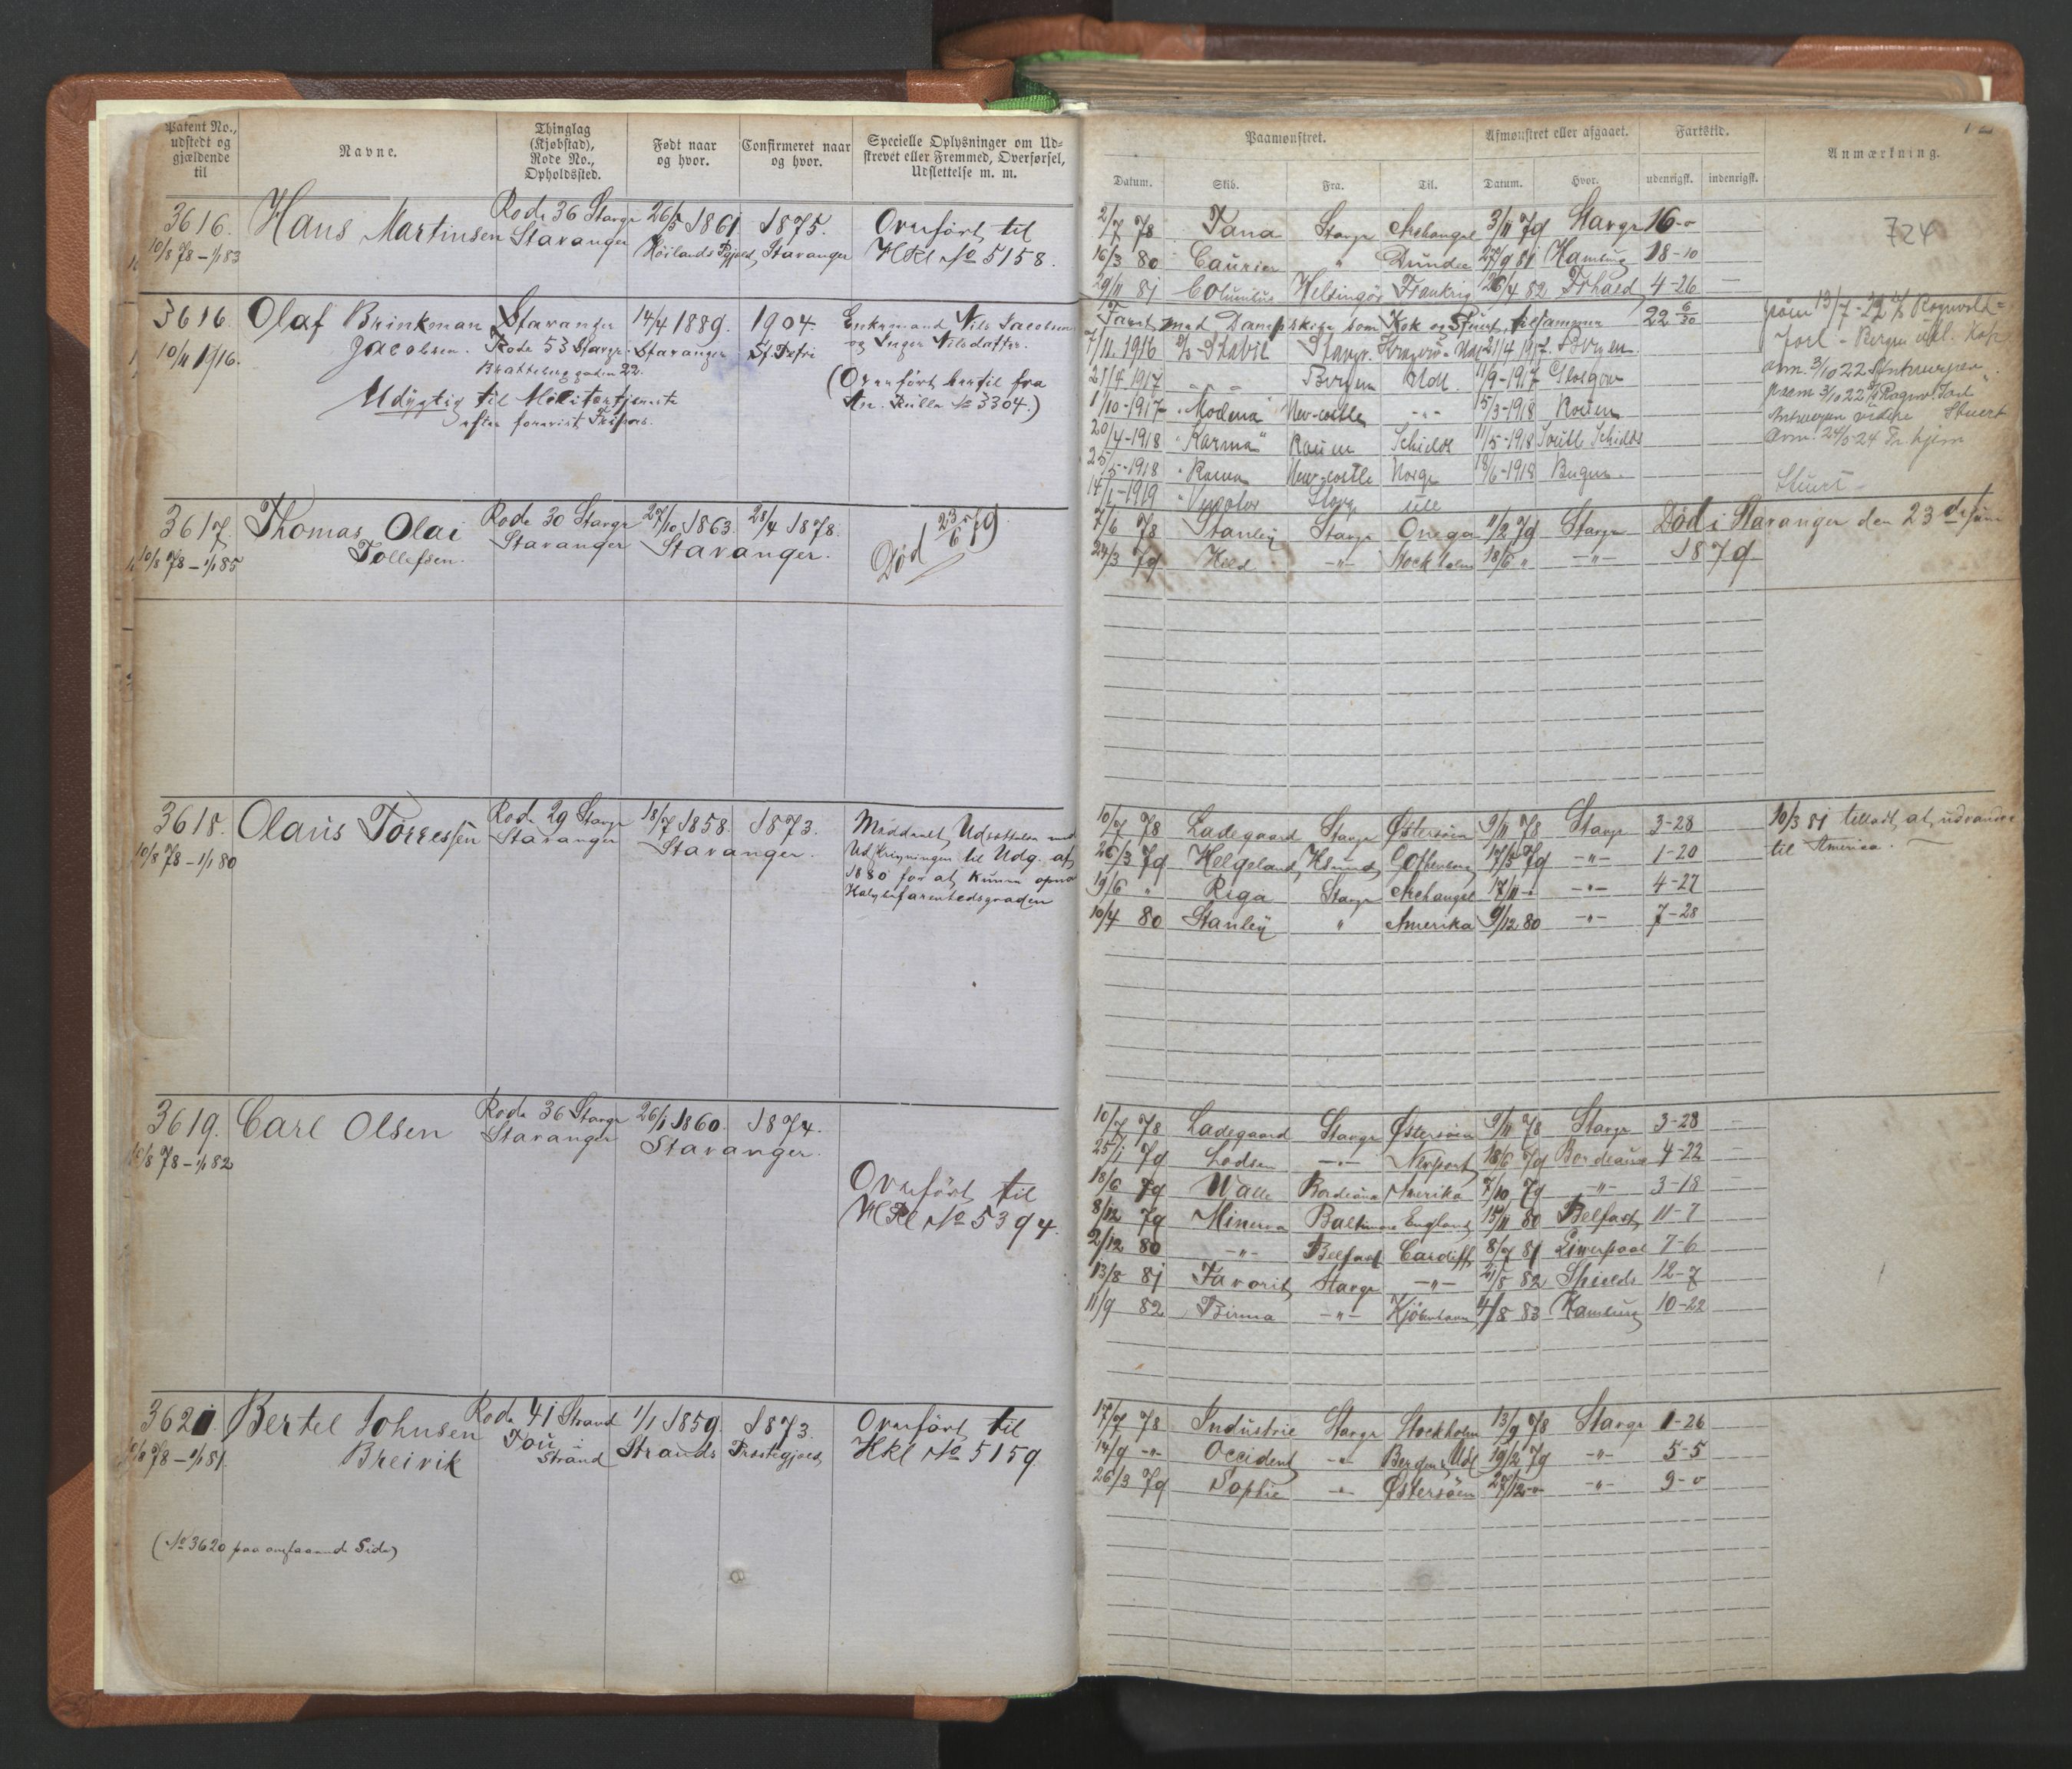 Patent No., udstedt og gjældende til
Navne.
Thinglag (Kjøbstad), Rode No., Opholdssted.
Født naar og hvor.
Confirmeret naar og hvor.
Specielle Oplysninger om Udskrevet eller Fremmed, Overførsel, Udslettelse m. m.
3616. Hans Martinsen Rode 36 Stavgr 26/5 1861 1875. Overført til
10/8 78 – 1/1 83 Stavanger Höilands Pgjeld, Stavanger HKl No 5158.
3616 Olaf Brinkman Stavanger 14/4 1889. 1904. Enkemand Nils Jacobsen
10/11 1916. Jacobsen. Rode 53 Stavgr. Stavanger St. Petri og Inger Nilsdatter.
Bratteberggaden 22. (Overført hertil fra
Udygtig til Militærtjeneste An. Rulle No 3304.)
3617. Thomas Olai Rode 30 Stavgr 27/10 1863. 28/4 1878.
10/8 78 – 1/1 85 Tollefsen. Stavanger Stavanger. Död 23/6 79
3618. Olaus Törressen Rode 29 Stavgr 18/7 1858. 1873. Meddelt Udsættelse med
10/8 78 – 1/1 80 Stavanger Stavanger. Udskrivningen til Udg. af
1880 for at kunne opnaa
Halvbefarenhedsgraden
3619. Carl Olsen Rode 36 Stavgr 26/1 1860. 1874.
10/8 78 – 1/1 82 Stavanger Stavanger.
Overført til
HKl No 5394.
3621 Bertel Johnsen Rode 41 Strand 1/1 1859. 1873. Overført til
10/8 78 – 1/1 81. Breivik Tou i Strand Strands Præstegjeld Hkl No 5159
(No 3620 paa omstaaende Side)
Paamønstret.
Afmønstret eller afgaaet.
Fartstid.
Anmærkning.
Datum. Skib. Fra. Til. Datum. Hvor. udenrigsk. indenrigsk.
724
2/7 78 Tana Stavgr Archangel 3/11 79 Stavgr 16-0
16/3 80 Caurier " Dundee 27/9 81 Hamburg 18-10
29/11 81 Columbus Helsingör Frankrig 26/4 82 Frhald 4-26
Faret med Dampskibe som Kok og Stuert, tilsammen 22 6/30
7/11. 1916 S/S Stabil Stavgr. 21/4 1917. Bergen.
21/4 1917 " " " Bergen Udl. 11/9-1917 Glasgow
1/10-1917 "Modena" New-castle -"- 15/3-1918 Rouen
20/4-1918 "Karma" Rouen Schields 11/5-1918 South Schields
25/5-1918 New-castle Norge 18/6-1918 Bergen.
14/1-1919 Stavgr
paam 13/7-22 Ragnvald
Jarl - Bergen
avm. 3/10 22 Antwerpen
paam 3/10 22 Ragnv. Jarl
Antwerpen videre Stuert
avm. 24/5 24 Tr.hjem
Stuert
7/6 78 Stanley Stavgr Onega 11/2 79 Stavgr Död i Stavanger den 23de Juni
24/3 79 Held -"- Stockholm 18/6 " -"- 1879
10/7 78 Ladegaard Stavgr Østersöen 9/11 78 Stavgr 3-28 10/3 81 tilladt at udvandre
26/3 79 Helgeland Hsund Gothenborg 17/5 79 -"- 1-20 til America.
19/6 " Riga Stavgr Archangel 17/11 -"- -"- 4-27
10/4 80 Stanley " Amerika 9/12 80 -"- 7-28
10/7 78 Ladegaard Stavgr Østersöen 9/11 78 Stavgr 3-28
25/1 79 Lodsen -"- Newport 18/6 79 Bordeaux 4-22
18/6 79 Walle Bordeaux Amerika 7/10 79 -"- 3-18
8/12 79 Minerva Baltimore England 15/11 80 Belfast 11-7
2/12 80 -"- Belfast Cardiff 8/7 81 Liverpool 7-6
13/8 81 Favorit Stavgr -"- 21/8 82 Shields 12-7
11/9 82 Birma -"- Kjöbenhavn 4/8 83 Hamburg 10-22
17/7 78 Industrie Stavgr Stockholm 13/9 78 Stavgr 1-26
14/9 -"- Occident -"- Bergen & Udl 19/2 79 -"- 5-5
26/3 79 Sophie -"- Østersöen 27/12 -"- -"- 9-0